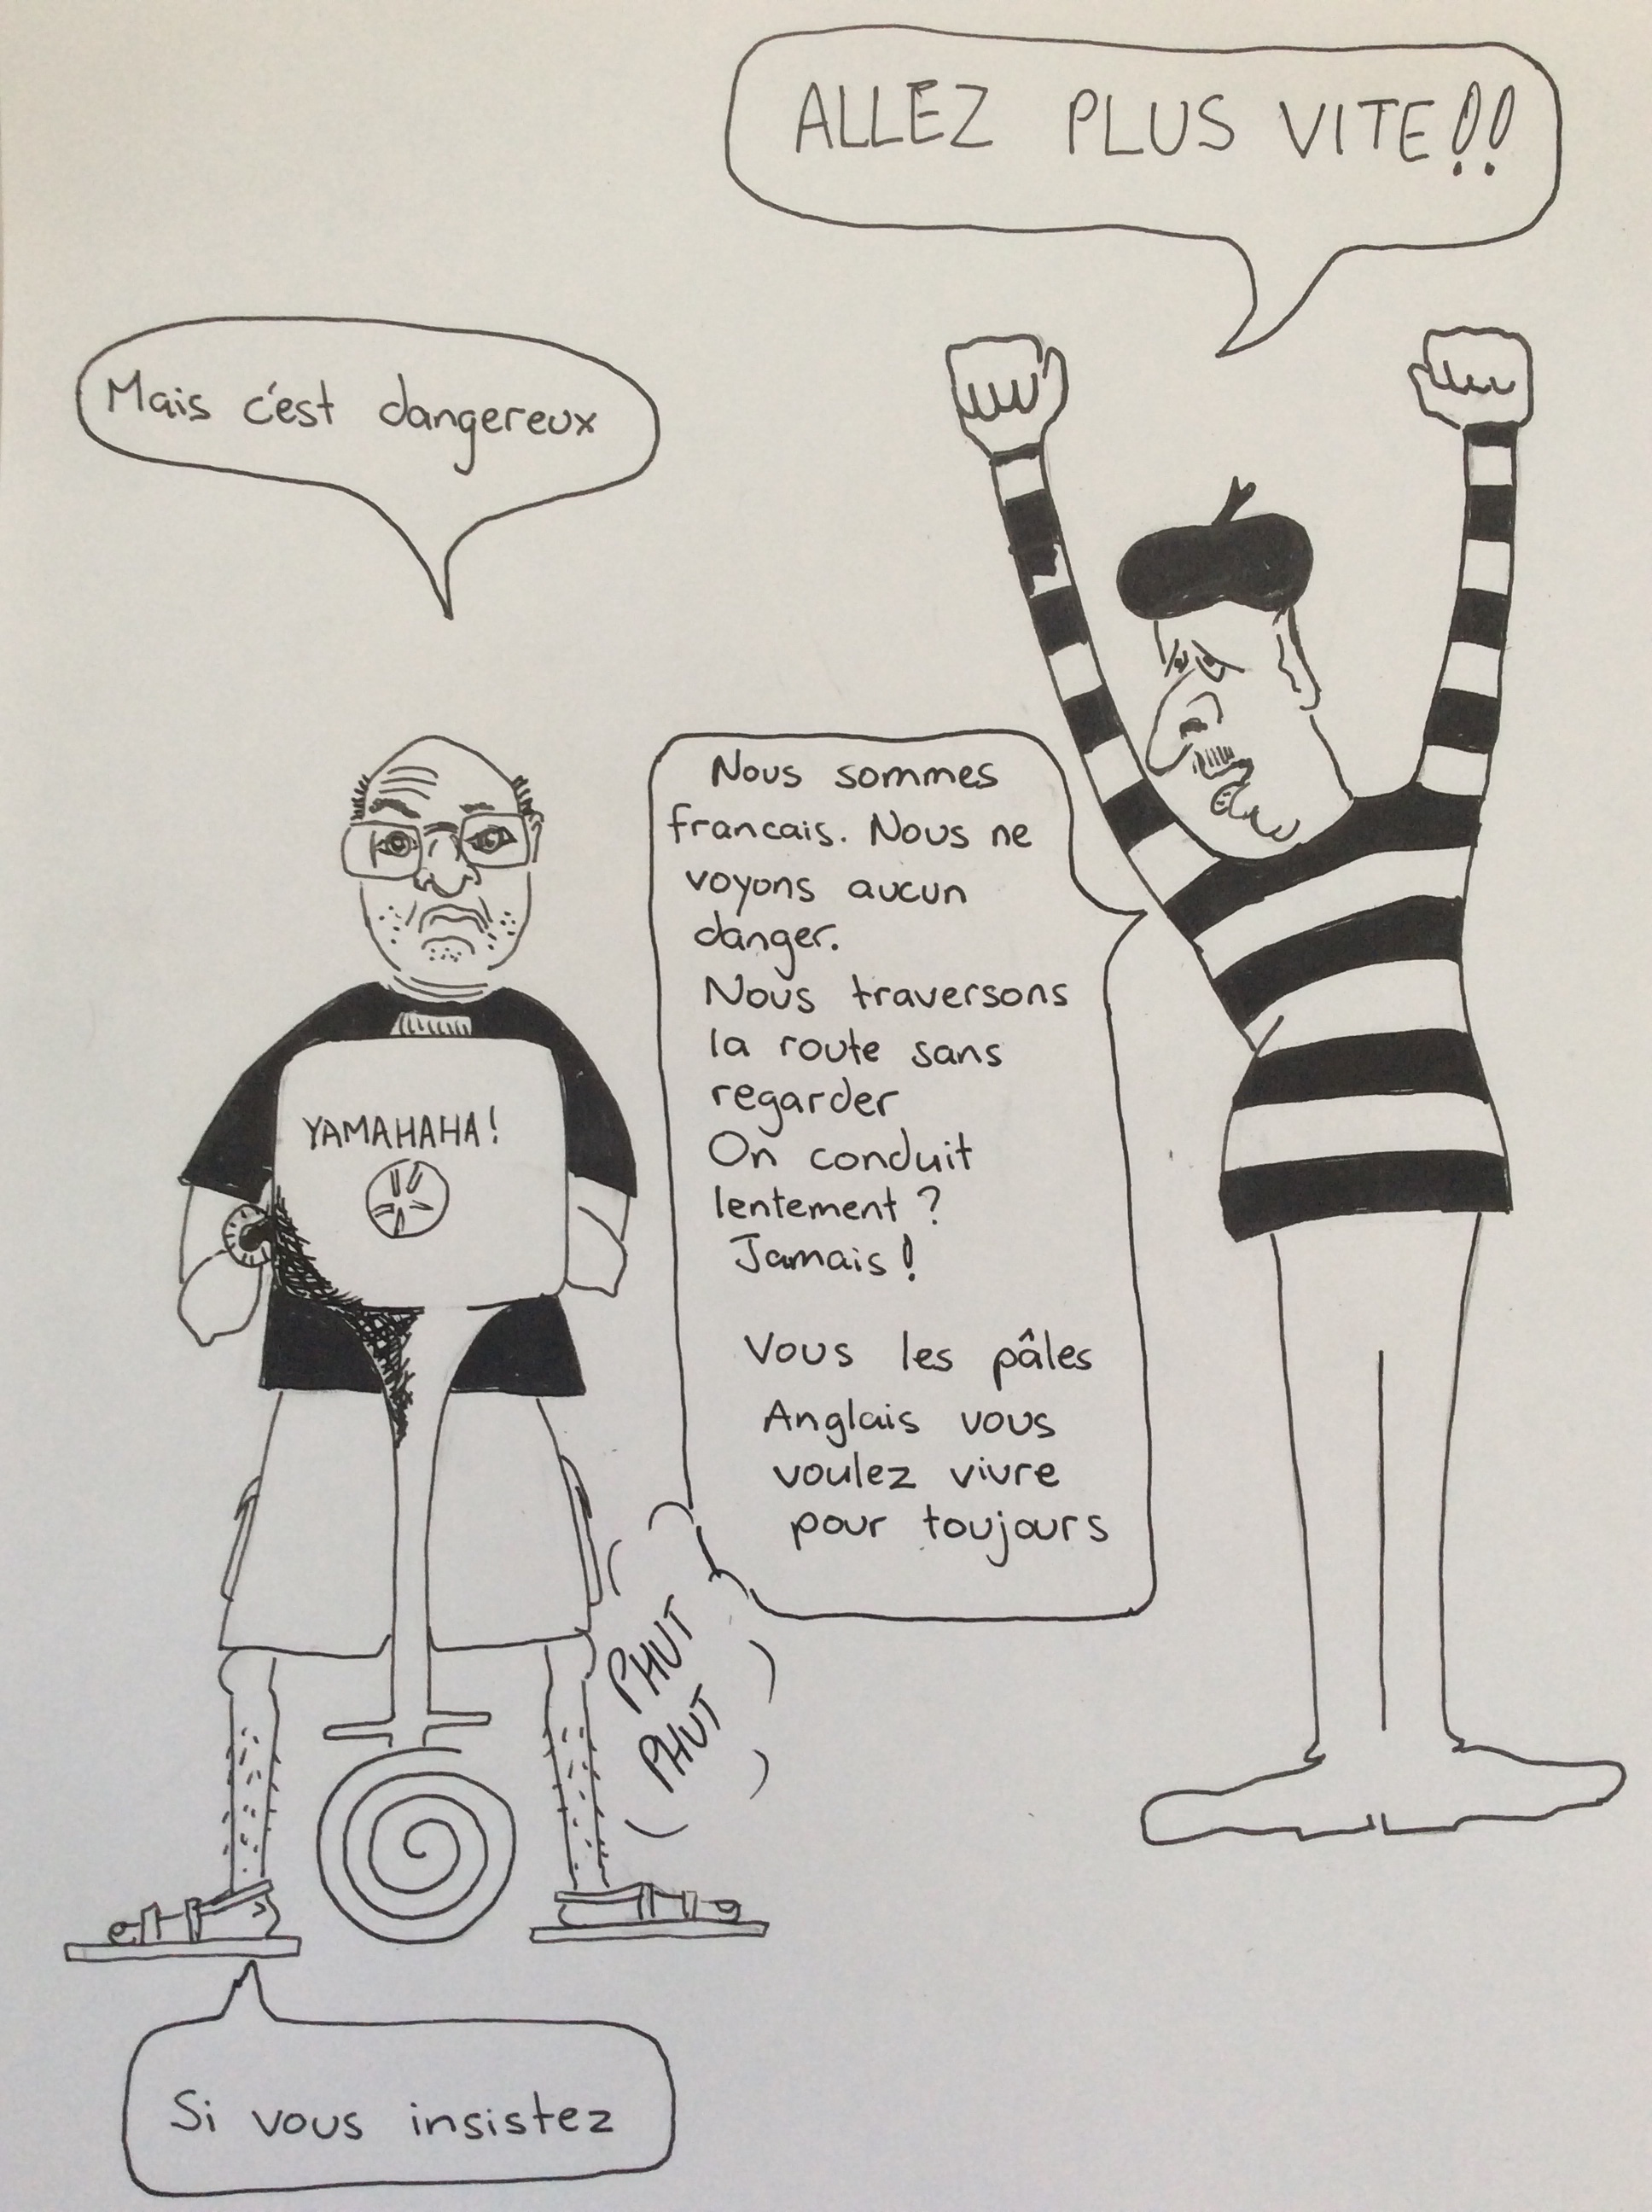 ALLEZ PLUS VITE!!
Mais c'est dangereux
Nous sommes
francais. Nous ne
voyons aucun
danger.
Nous traversons
la route sans
regarder
On conduit
lentement ?
Jamais !
Vous les pâles
Anglais vous
voulez vivre
pour toujours
YAMAHAHA!
PHUT
PHUT
Si vous insistez